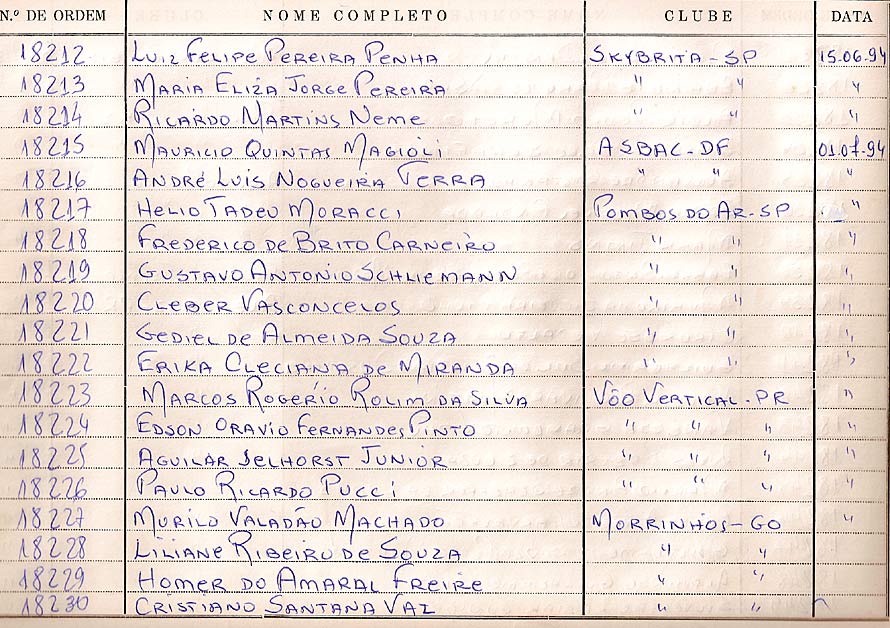 N.º DE ORDEM NOME COMPLETO CLUBE DATA
18212 LUIZ FELIPE PEREIRA PENHA SKYBRITA-SP 15.06.94
18213 MARIA ELIZA JORGE PEREIRA " " "
18214 RICARDO MARTINS NEME " " "
18215 MAURICIO QUINTAS MAGIOLI ASBAC-DF 01.07.94
18216 ANDRÉ LUIS NOGUEIRA TERRA " " "
18217 HELIO TADEU MORACCI POMBOS DO AR-SP "
18218 FREDERICO DE BRITO CARNEIRO " " "
18219 GUSTAVO ANTONIO SCHLIEMANN " " "
18220 CLEBER VASCONCELOS " " "
18221 GEDIEL DE ALMEIDA SOUZA " " "
18222 ERIKA CLECIANA DE MIRANDA " " "
18223 MARCOS ROGERIO ROLIM DA SILVA VÔO VERTICAL-PR "
18224 EDSON ORAVIO FERNANDES PINTO " " " "
18225 AGUILAR SELHORST JUNIOR " " " "
18226 PAULO RICARDO PUCCI " " " "
18227 MURILO VALADÃO MACHADO MORRINHOS-GO "
18228 LILIANE RIBEIRO DE SOUZA " "
18229 HOMER DO AMARAL FREIRE " "
18230 CRISTIANO SANTANA VAZ " "